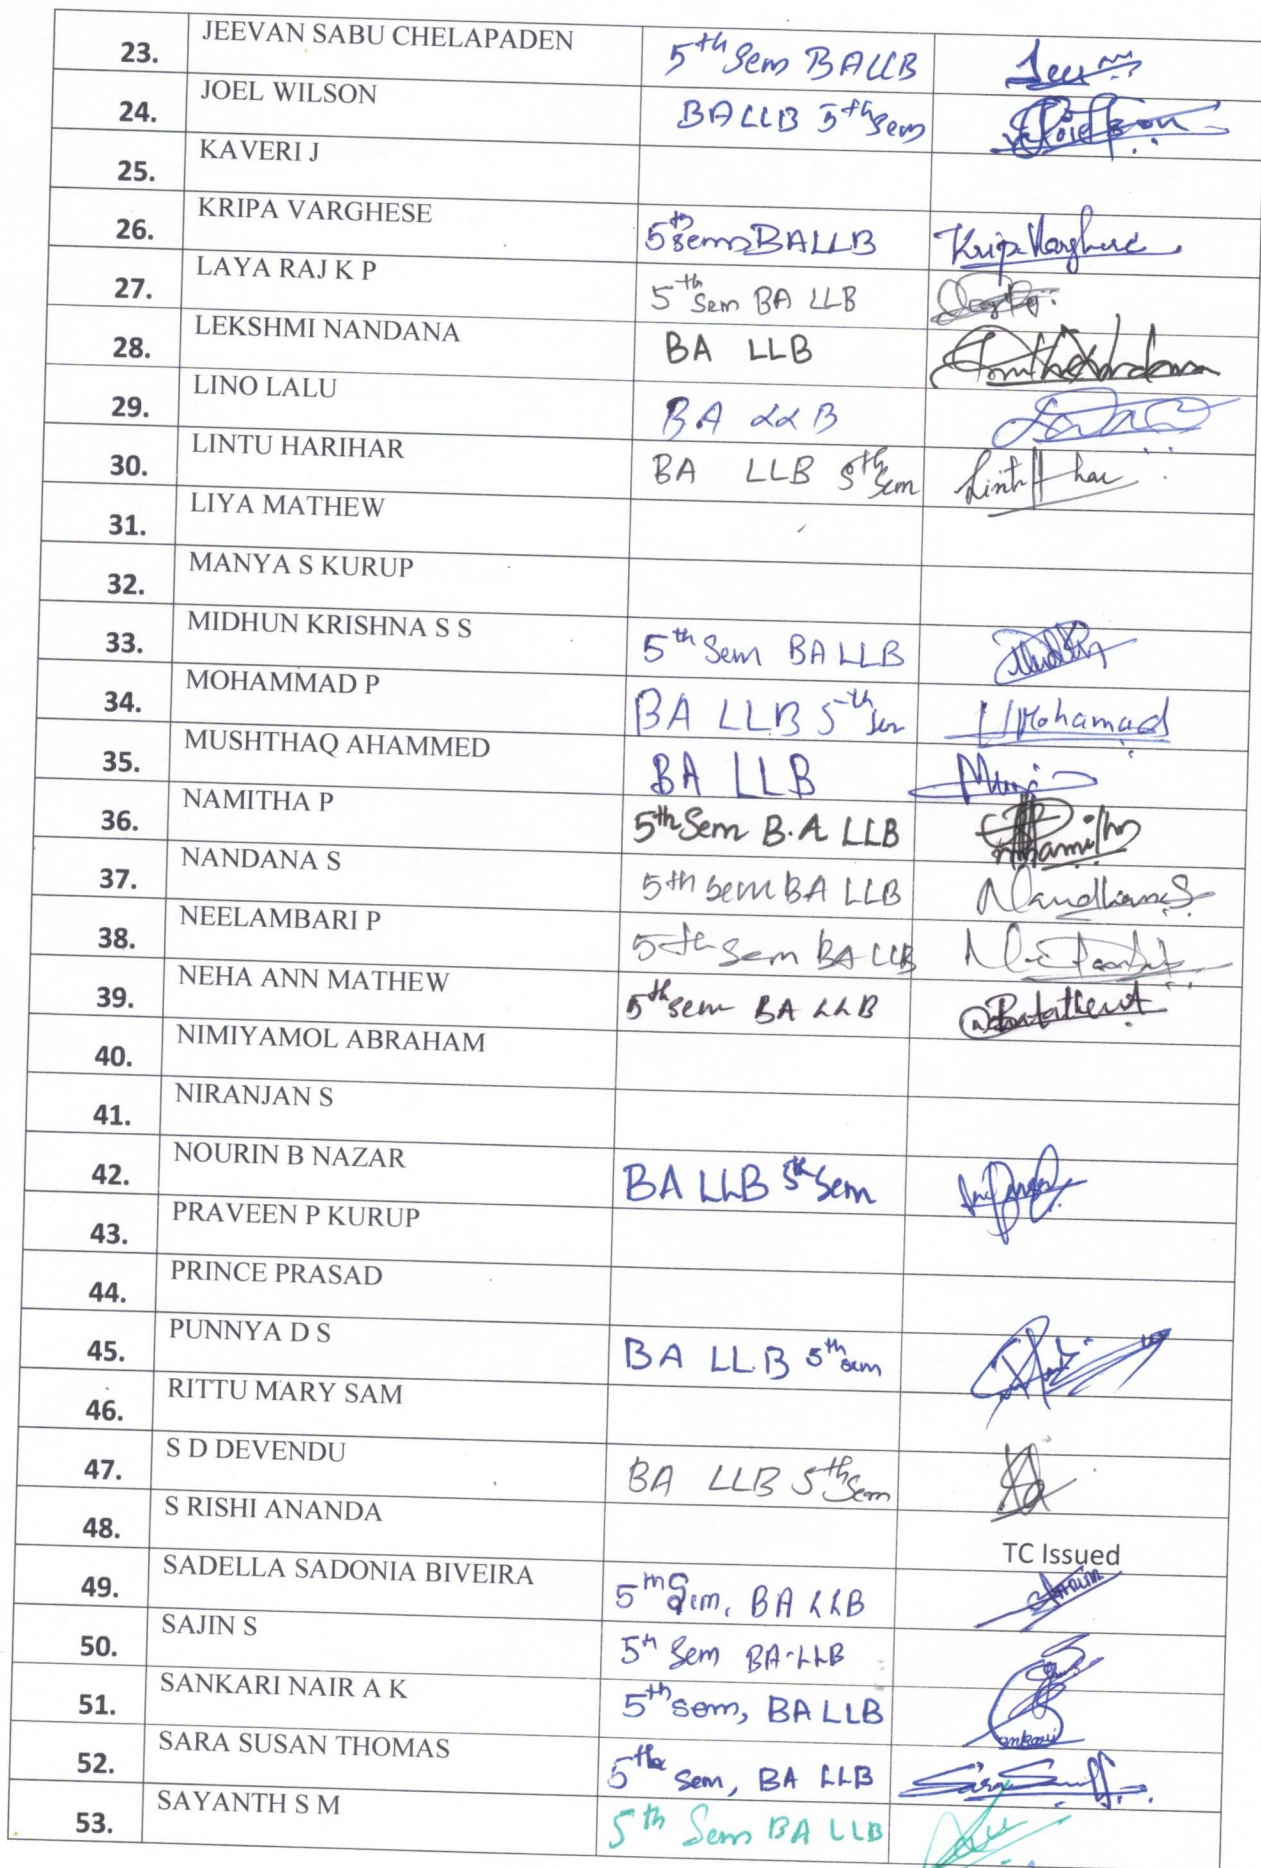 23. JEEVAN SABU CHELAPADEN 5th Sem BALLB
24. JOEL WILSON BALLB 5th Sem
25. KAVERI J
26. KRIPA VARGHESE 5th Sem BALLB Kripa Varghese
27. LAYA RAJ K P 5th Sem BA LLB
28. LEKSHMI NANDANA BA LLB
29. LINO LALU BA LLB
30. LINTU HARIHAR BA LLB 5th Sem
31. LIYA MATHEW
32. MANYA S KURUP
33. MIDHUN KRISHNA S S 5th Sem BA LLB
34. MOHAMMAD P BA LLB 5th Sem Mohamad
35. MUSHTHAQ AHAMMED BA LLB
36. NAMITHA P 5th Sem B.A LLB
37. NANDANA S 5th Sem BA LLB
38. NEELAMBARI P 5th Sem BA LLB
39. NEHA ANN MATHEW 5th Sem BA LLB
40. NIMIYAMOL ABRAHAM
41. NIRANJAN S
42. NOURIN B NAZAR BA LLB 5th Sem
43. PRAVEEN P KURUP
44. PRINCE PRASAD
45. PUNNYA D S BA LLB 5th sem
46. RITTU MARY SAM
47. S D DEVENDU BA LLB 5th Sem
48. S RISHI ANANDA TC Issued
49. SADELLA SADONIA BIVEIRA 5th Sem, BA LLB
50. SAJIN S 5th Sem BA-LLB
51. SANKARI NAIR A K 5th sem, BA LLB
52. SARA SUSAN THOMAS 5th Sem, BA LLB
53. SAYANTH S M 5th Sem BA LLB